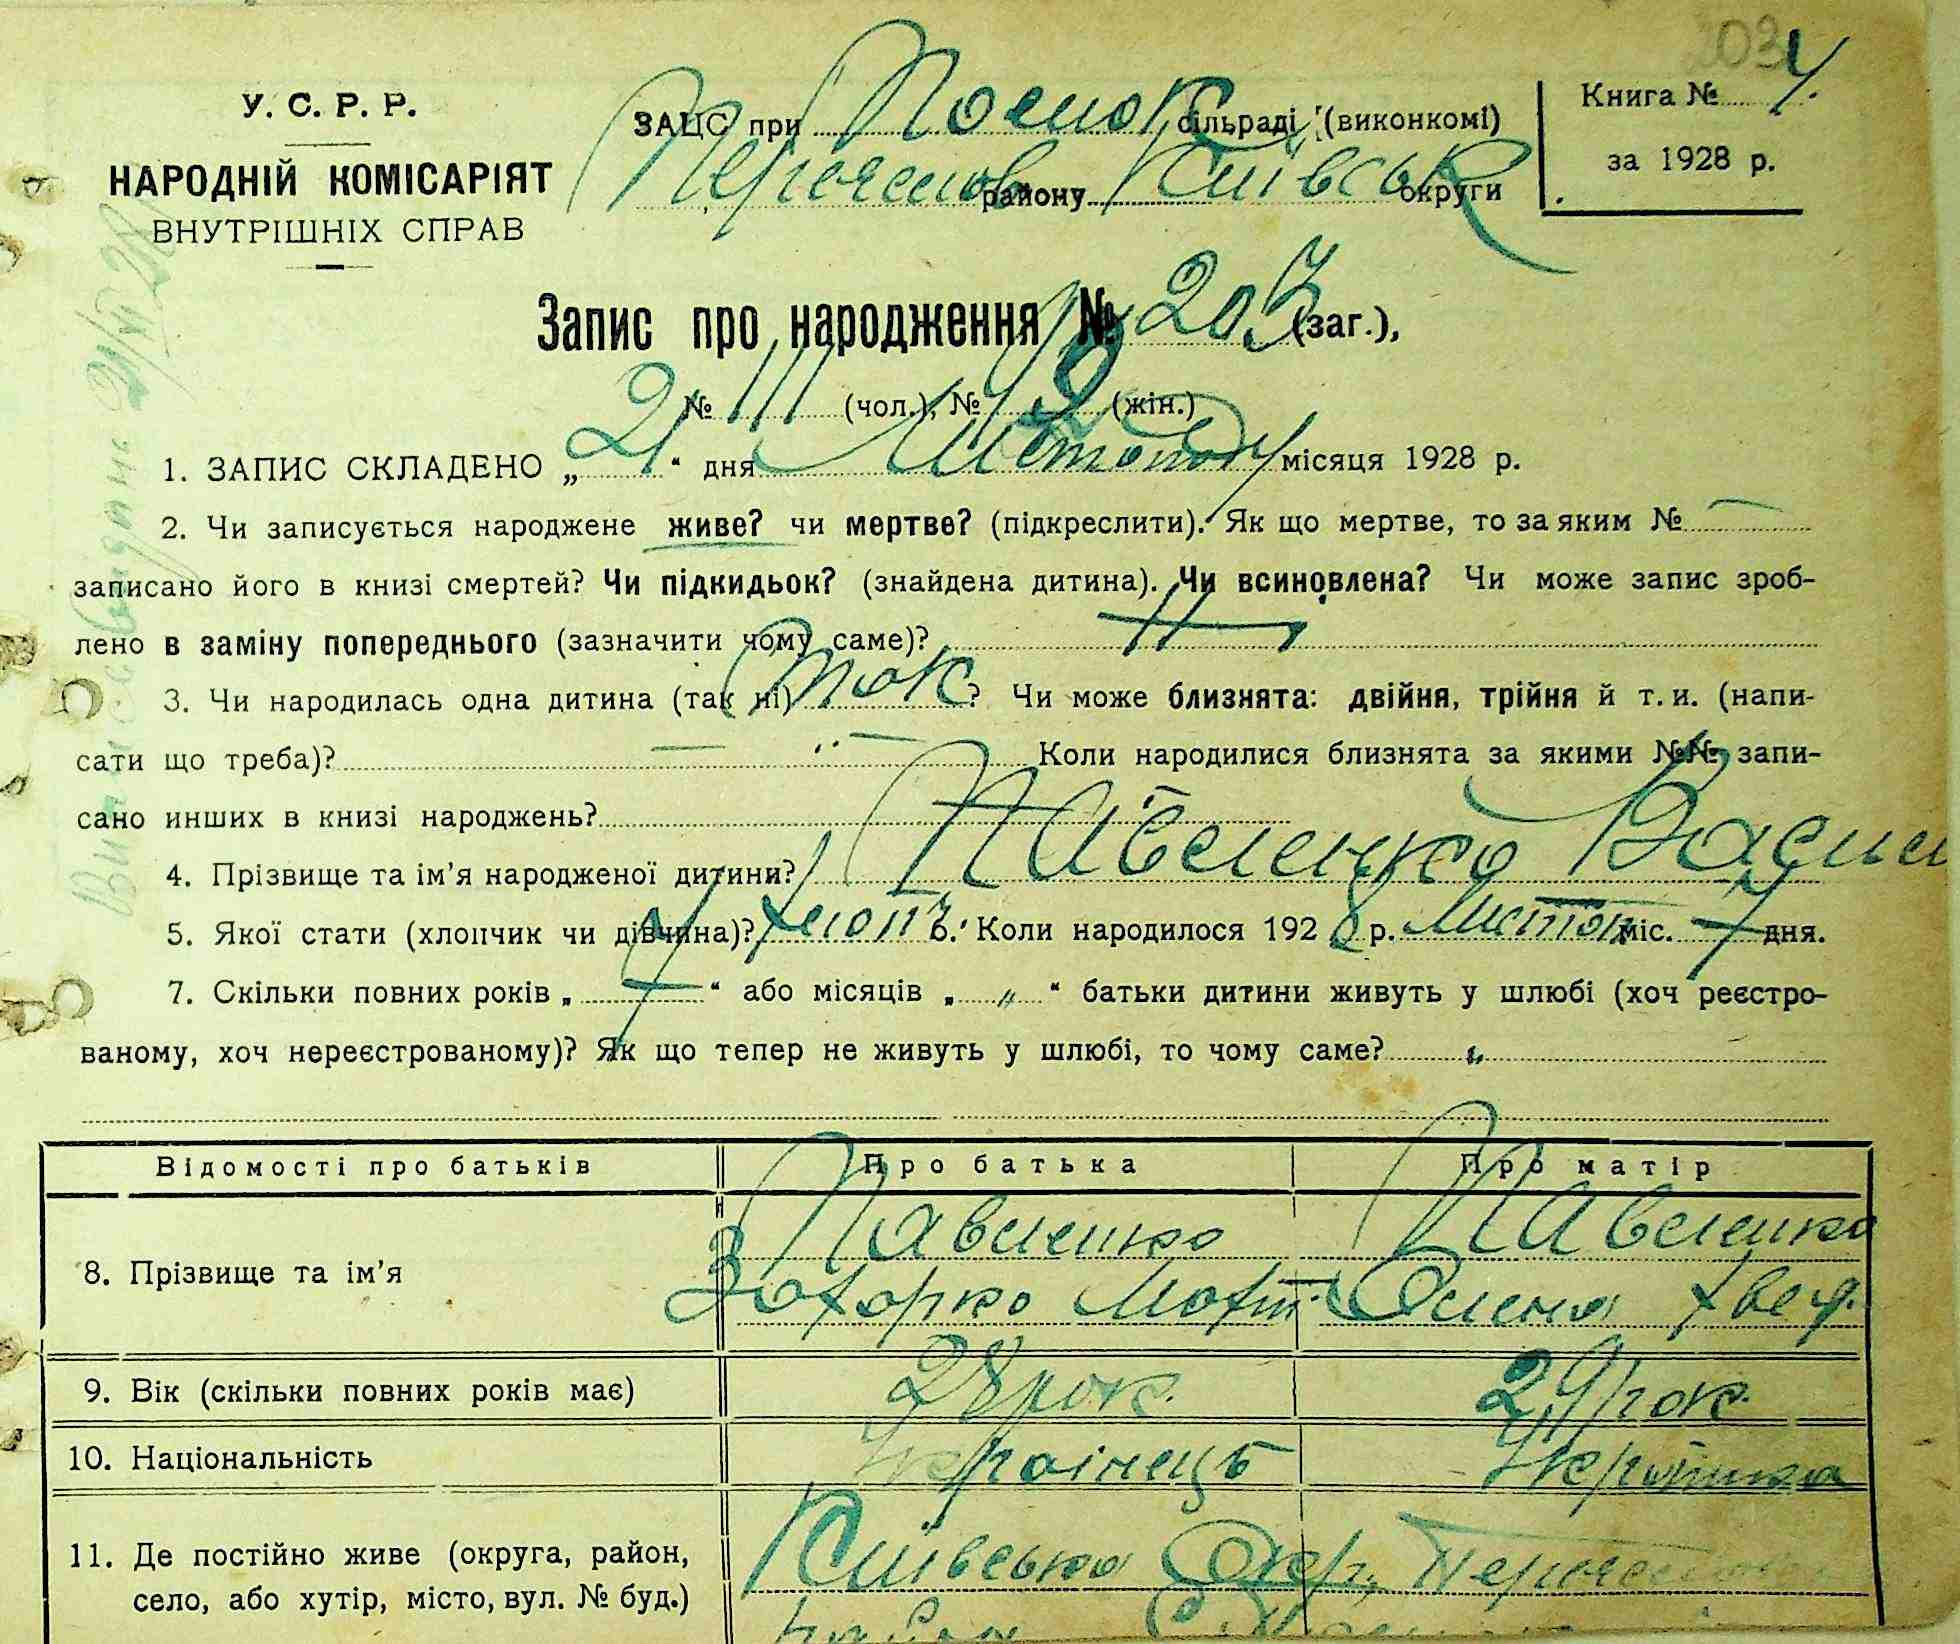 203
У. С. Р. Р.
НАРОДНІЙ КОМІСАРІЯТ
ВНУТРІШНІХ СПРАВ
ЗАЦС при сільраді (виконкомі)
Переяслов району Київськ округи
Книга № 4.
за 1928 р.
Запис про народження № 203 (заг.),
№ 111 (чол.), № 92 (жін.)
1. ЗАПИС СКЛАДЕНО „ 21 “ дня Листопаду місяця 1928 р.
2. Чи записується народжене живе? чи мертве? (підкреслити). Як що мертве, то за яким № —
записано його в книзі смертей? Чи підкидьок? (знайдена дитина). Чи всиновлена? Чи може запис зроб-
лено в заміну попереднього (зазначити чому саме)?
3. Чи народилась одна дитина (так ні) так ? Чи може близнята: двійня, трійня й т. и. (напи-
сати що треба)? — — Коли народилися близнята за якими №№ запи-
сано инших в книзі народжень?
4. Прізвище та ім’я народженої дитини? Павленко Васил
5. Якої стати (хлопчик чи дівчина)? хлопч. Коли народилося 1928 р. Листоп міс. 7 дня.
7. Скільки повних років „ 7 “ або місяців „ „ “ батьки дитини живуть у шлюбі (хоч реєстро-
ваному, хоч нереєстрованому)? Як що тепер не живуть у шлюбі, то чому саме? „
Відомості про батьків Про батька Про матір
8. Прізвище та ім’я Павленко Захарко Павленко Олена Хвед.
9. Вік (скільки повних років має) 28 рок. 29 рок.
10. Національність Українець Українка
11. Де постійно живе (округа, район, Київська Окр. Переяслов
село, або хутір, місто, вул. № буд.)